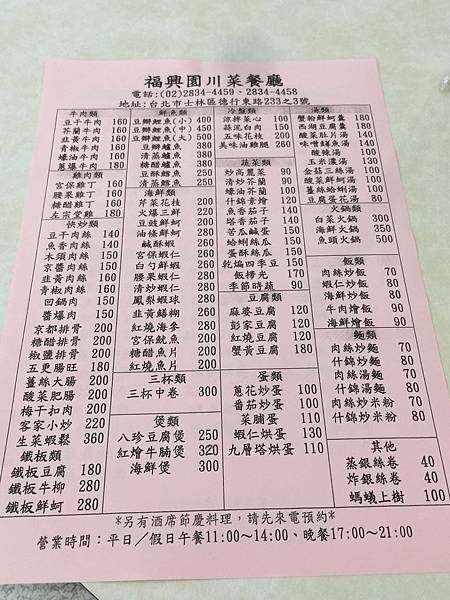 福興園川菜餐廳
電話:(02)2834-4459、2834-4458
地址:台北市士林區德行東路233之3號
牛肉類
豆干牛肉 160
芥蘭牛肉 160
韭黃牛肉 160
青椒牛肉 160
蠔油牛肉 160
蔥爆牛肉 160
雞肉類
宮保雞丁 160
腰果雞丁 160
糖醋雞丁 160
左宗堂雞 180
快炒類
豆干肉絲 140
魚香肉絲 140
木須肉絲 150
京醬肉絲 150
韭黃肉絲 160
青椒肉絲 160
回鍋肉 150
醬爆肉 150
京都排骨 200
糖醋排骨 200
椒鹽排骨 200
五更腸旺 180
薑絲大腸 200
酸菜肥腸 200
梅干扣肉 200
客家小炒 220
生菜蝦鬆 360
鐵板類
鐵板豆腐 180
鐵板牛柳 280
鐵板鮮蚵 280
鮮魚類
豆瓣鯉魚(小) 400
豆瓣鯉魚(中) 450
豆瓣鯉魚(大) 500
豆瓣鱸魚 380
清蒸鱸魚 380
糖醋鱸魚 380
豆酥鱈魚 250
清蒸鱈魚 250
海鮮類
芹菜花枝 200
火爆三鮮 220
豆豉鮮蚵 200
油條鮮蚵 280
鹹酥蝦 280
宮保蝦仁 280
白勺鮮蝦 280
腰果蝦仁 280
清炒蝦仁 280
鳳梨蝦球 280
韭黃鱔糊 260
紅燒海參 280
宮保魷魚 200
糖醋魚片 200
紅燒魚片 200
三杯類
三杯中卷 300
煲類
八珍豆腐煲 250
紅燴牛腩煲 320
海鮮煲 300
冷盤類
涼拌菜心 100
蒜泥白肉 150
五味花枝 200
美味油雞腿 200
蔬菜類
炒高麗菜 90
清炒芥蘭 90
蠔油芥蘭 90
什錦會燴 120
魚香茄子 140
塔香茄子 140
苦瓜鹹蛋 150
蛤蜊絲瓜 150
蛋酥絲瓜 150
乾煸四季豆 150
飯掃光 170
季節時蔬 90
豆腐類
麻婆豆腐 120
彭家豆腐 120
紅燒豆腐 120
蟹黃豆腐 180
蛋類
蔥花炒蛋 100
番茄炒蛋 100
菜脯蛋 110
蝦仁烘蛋 130
九層塔烘蛋 110
湯類
蟹粉鮮蚵羹
西湖豆腐羹 180
酸菜肚片湯 180
味噌鱔魚湯 180
酸辣湯 180
玉米濃湯 130
金菇三絲湯 180
酸菜鮮蚵湯 180
薑絲蛤蜊湯 180
豆腐蛋花湯 80
火鍋類
白菜火鍋 300
海鮮火鍋 350
魚頭火鍋 500
飯類
肉絲炒飯 70
蝦仁炒飯 80
海鮮炒飯 80
牛肉燴飯 90
海鮮燴飯 90
麵類
肉絲炒麵 70
什錦炒麵 80
肉絲湯麵 70
什錦湯麵 80
肉絲炒米粉 70
什錦炒米粉 80
其他
蒸銀絲卷 40
炸銀絲卷 40
螞蟻上樹 100
*另有酒席節慶料理，請先來電預約*
營業時間：平日／假日午餐11:00~14:00、晚餐17:00~21:00